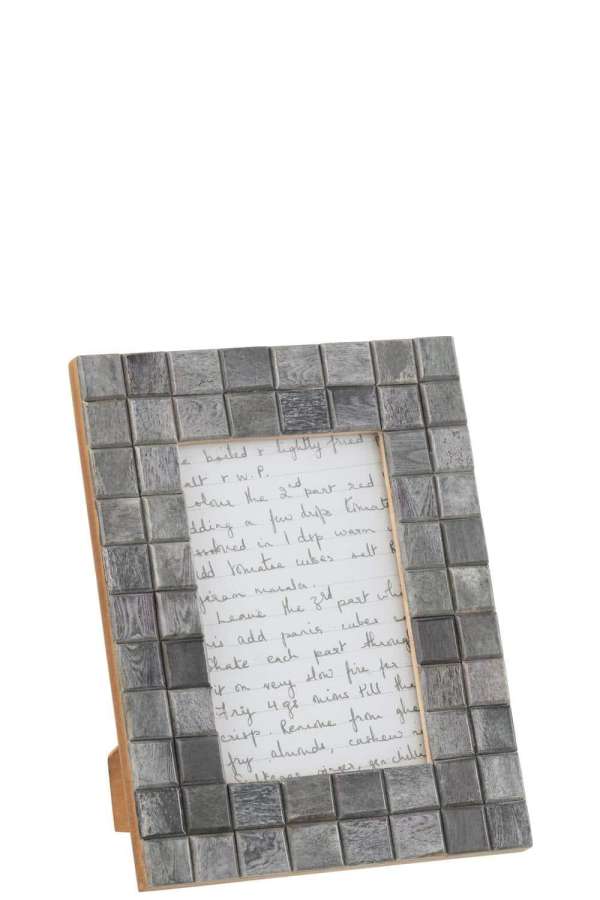 e boiled & lightly fried
alt & W.P.
olour the 2nd part red
dding a few drops tomato
ssolved in 1 dsp warm
dd tomatoe cubes salt
garam masala.
Leave the 3rd part whi
is add panir cubes
Shake each part throug
it on very slow fire for
Fry 4 gs onions till the
crisp. Remove from ghe
fry almonds, cashew n
ginger, green chilli